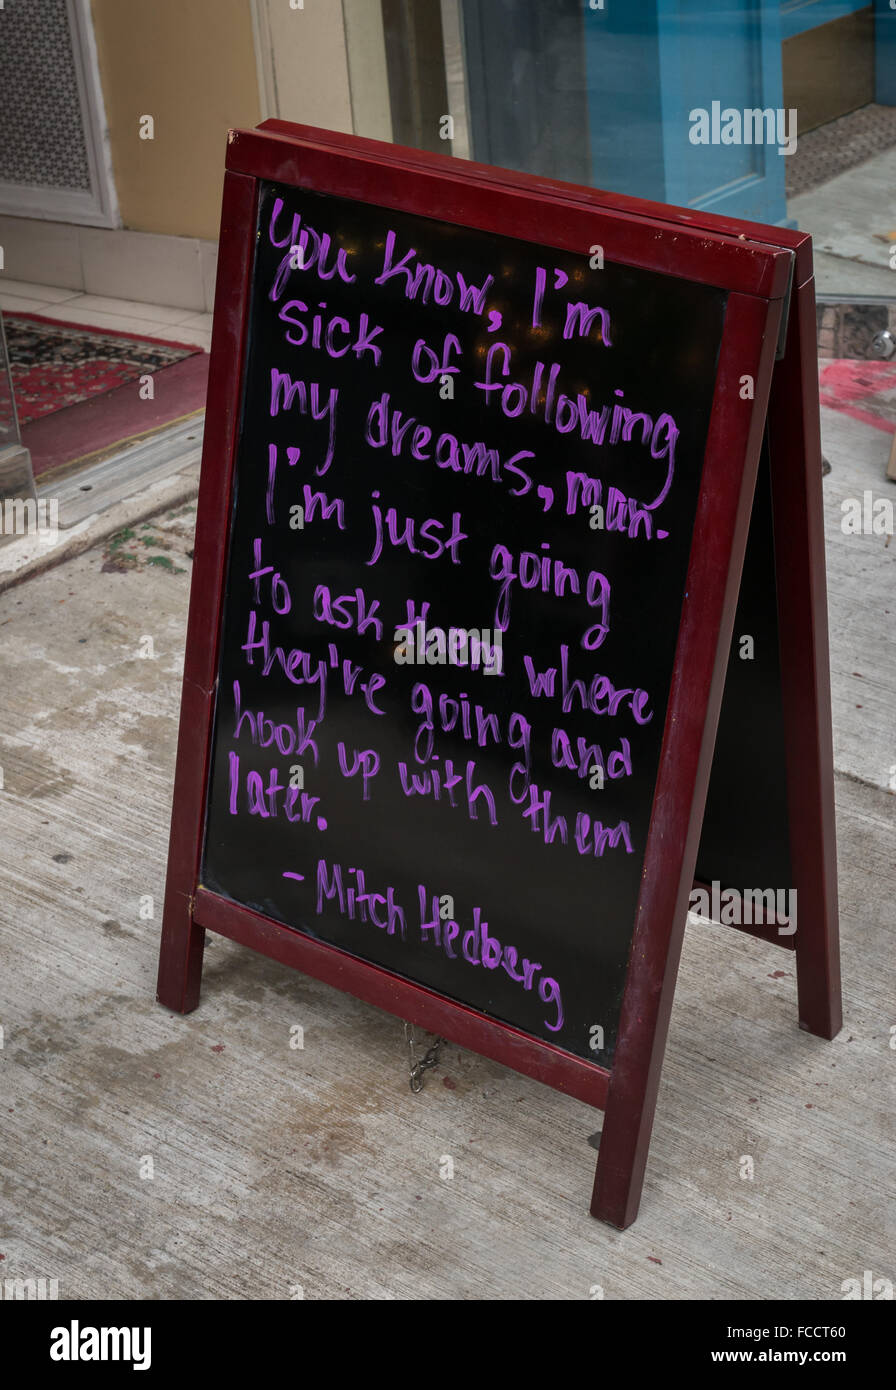 You know, I'm
sick of following
my dreams, man.
I'm just going
to ask them where
they're going and
hook up with them
later.
- Mitch Hedberg
alamy
Image ID: FCCT60
www.alamy.com